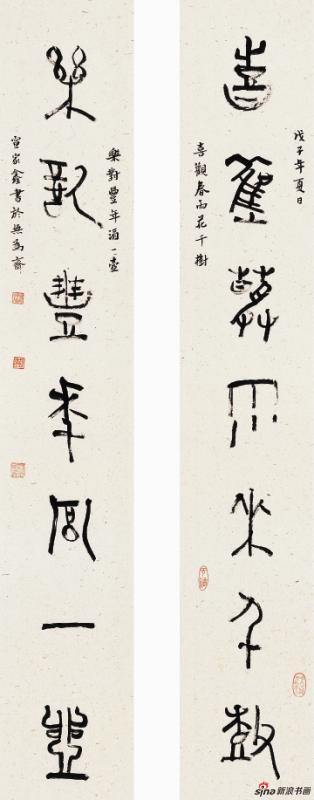 戊子年夏日
喜雚萅雨花千樹
喜觀春雨花千樹
樂對豐年酒一壺
樂對豐年酒一壺
宣家鑫書於無為齋
sina新浪书画